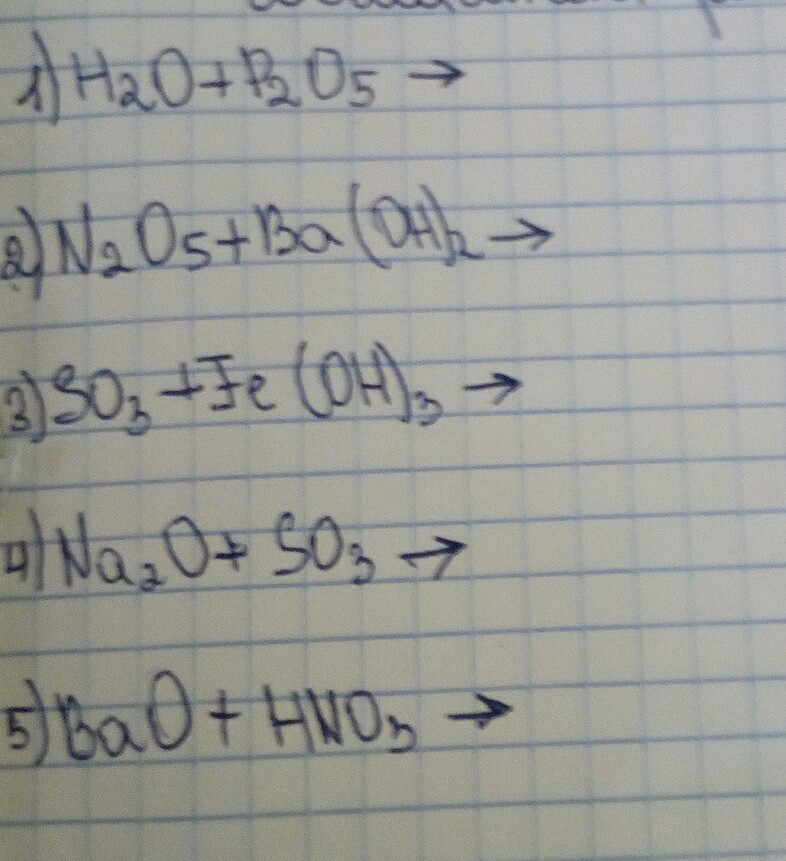 1) H₂O + P₂O₅ →
2) N₂O₅ + Ba(OH)₂ →
3) SO₃ + Fe(OH)₃ →
4) Na₂O + SO₃ →
5) BaO + HNO₃ →